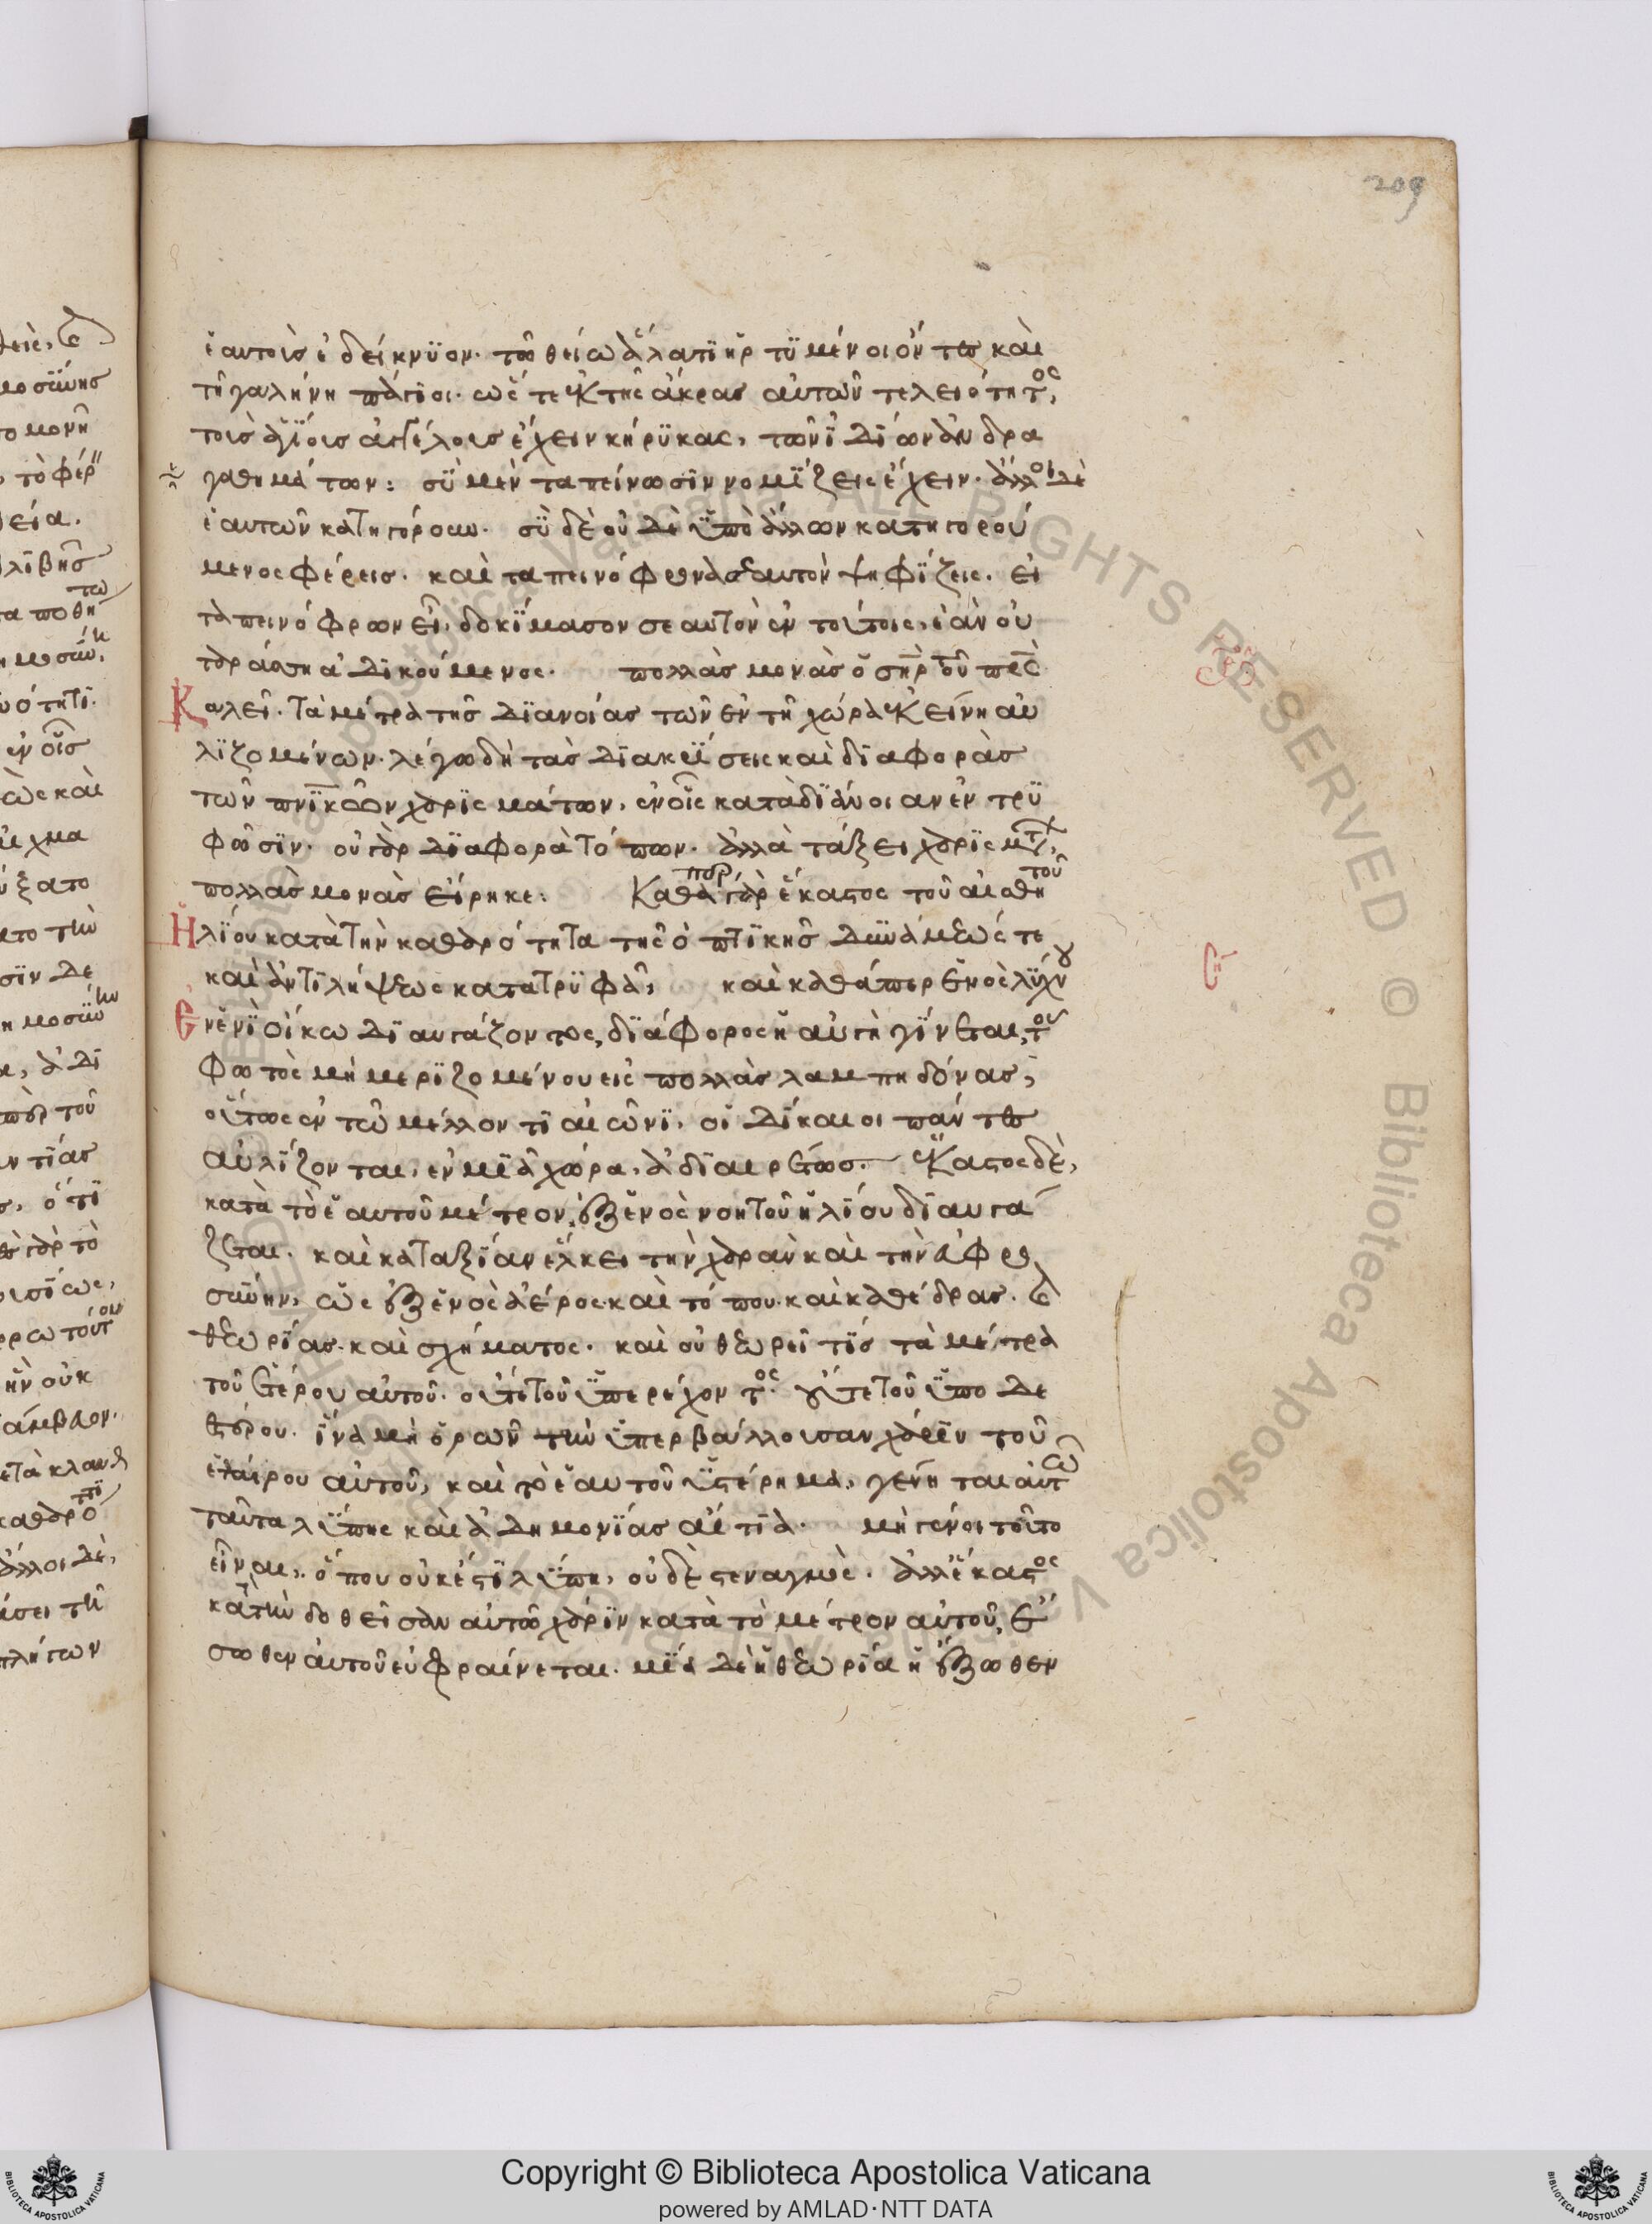 209
ἑαυτοὺς ἐδείκνυον· τῶ θείω ἅλατι ἠρτυμένοι ὄντως καὶ
τῆ γαλήνη πάγιοι· ὥστε ἐκ τῆς ἄκρας αὐτῶν τελειότητος,
τοὺς ἁγίους ἀγγέλους ἔχειν κήρυκας, τῶν ἰδίων ἀνδρα
γαθημάτων: σὺ μὲν ταπείνωσιν νομίζεις ἔχειν· ἄλλοι δὲ
ἑαυτῶν κατηγόρουν· σὺ δὲ οὐδὲ ὑπὸ ἄλλων κατηγορού
μενος φέρεις· καὶ ταπεινόφρονα σεαυτὸν ψηφίζεις. εἰ
ταπεινόφρων εἶ, δοκίμασον σεαυτὸν ἐν τούτοις, ἐὰν οὐ
ταράσση ἀδικούμενος. πολλὰς μονὰς ὁ σηρ τοῦ πρς
Καλεῖ· τὰ μέτρα τῆς διανοίας τῶν ἐν τῆ χώρα ἐκείνη αὐ
λιζομένων· λέγω δὴ τὰς διακρίσεις καὶ διαφορὰς
τῶν πνικῶν χαρισμάτων, ἐν οἷς κατὰ διάνοιαν ἐντρυ
φῶσιν. οὐ γὰρ διαφορὰ τόπων· ἀλλὰ τάξει χαρισμάτων,
πολλὰς μονὰς εἴρηκε: Καθάπερ γὰρ ἕκαστος τοῦ αἰσθητοῦ
Ἡλίου κατὰ τὴν καθαρότητα τῆς ὀπτικῆς δυνάμεώς τε
καὶ ἀντιλήψεως κατατρυφᾶ, καὶ καθάπερ ἑνὸς λύχνου
Ἐν ἑνὶ οἴκω διαυγάζοντος, διάφορος ἡ αὐγὴ γίνεται, τοῦ
φωτὸς μὴ μεριζομένου εἰς πολλὰς λαμπηδόνας,
οὕτως ἐν τῶ μέλλοντι αἰῶνι, οἱ δίκαιοι πάντως
αὐλίζονται, ἐν μιᾶ χώρα, ἀδιαιρέτως. ἕκαστος δὲ,
κατὰ τὸ ἑαυτοῦ μέτρον, ἐξ ἑνὸς νοητοῦ ἡλίου διαυγά
ζεται. καὶ κατ' ἀξίαν ἕλκει τὴν χαρὰν καὶ τὴν εὐφρο
σύνην, ὡς ἐξ ἑνὸς ἀέρος καὶ τόπου καὶ καθέδρας. καὶ
θεωρίας· καὶ σχήματος. καὶ οὐ θεωρεῖ τίς τὰ μέτρα
τοῦ ἑτέρου αὐτοῦ. οὔτε τοῦ ὑπερέχοντος· οὔτε τοῦ ὑποδε
εστέρου. ἵνα μὴ ὁρῶν τὴν ὑπερβάλλουσαν χάριν τοῦ
ἑταίρου αὐτοῦ, καὶ τὸ ἑαυτοῦ ὑστέρημα, γένηται αὐτῶ
ταῦτα λύπης καὶ ἀδημονίας αἰτία. μὴ γένοιτο τοῦτο
εἶναι, ὅπου οὐκ ἔστι λύπη, οὐδὲ στεναγμός. ἀλλ' ἕκαστος
κατὰ τὴν δοθεῖσαν αὐτῶ χάριν κατὰ τὸ μέτρον αὐτοῦ, ἔ
σωθεν αὐτοῦ εὐφραίνεται. μία δὲ ἡ θεωρία ἡ ἔξωθεν
Copyright © Biblioteca Apostolica Vaticana
powered by AMLAD·NTT DATA